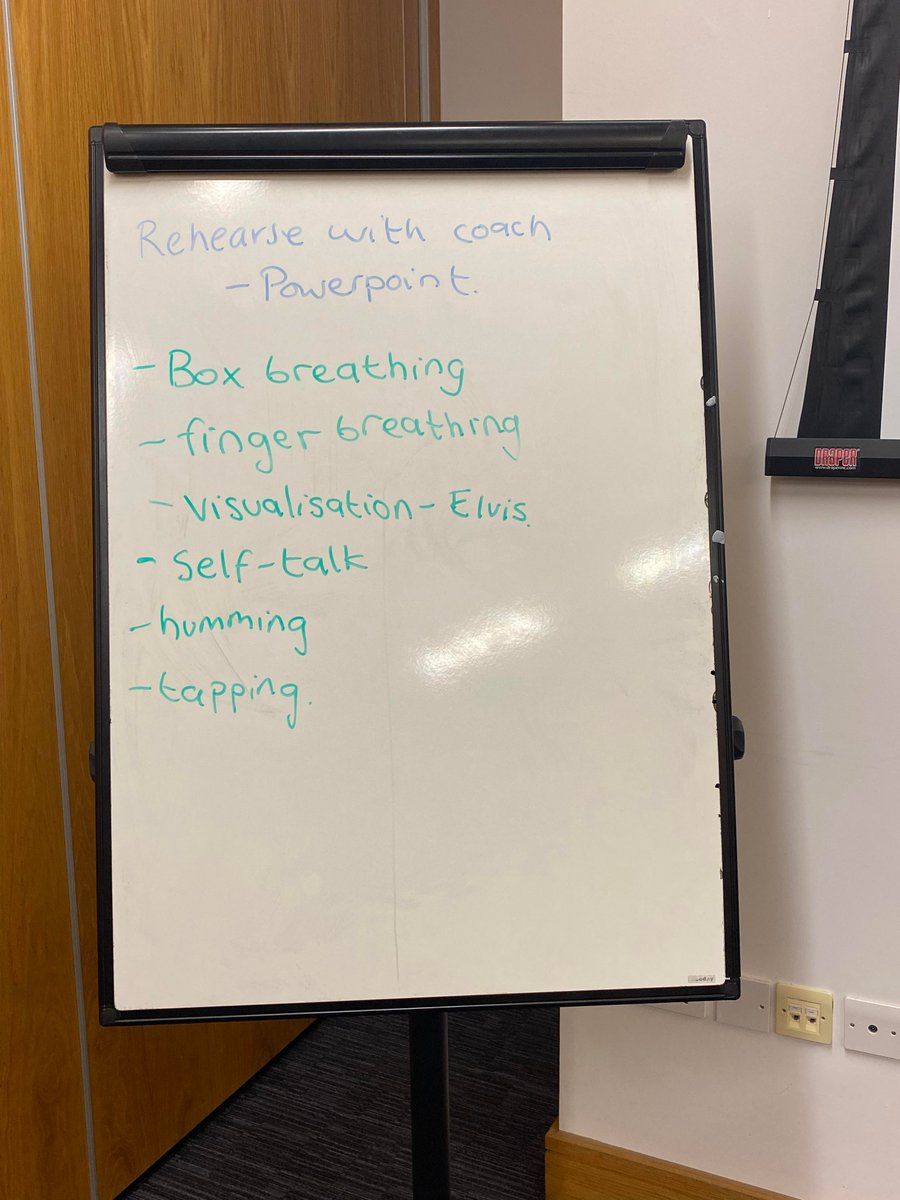 Rehearse with coach
- Powerpoint.
- Box breathing
- finger breathing
- visualisation - Elvis.
- Self-talk
- humming
- tapping.
DRAPER
www.draperinc.com